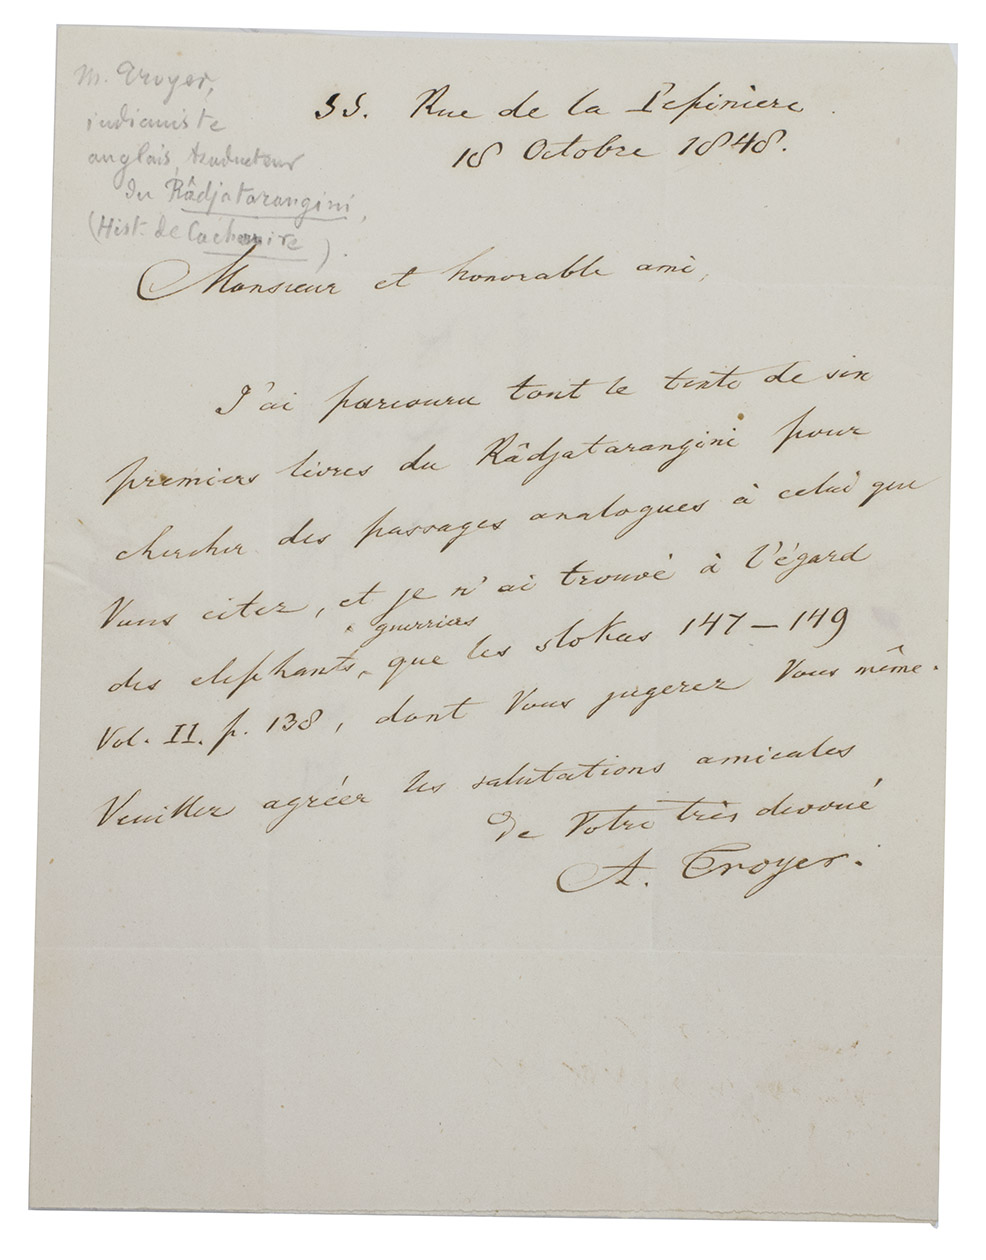 M. Troyer,
indianiste
anglais, traducteur
du Râdjatarangini,
(Hist. de Cachemire).
55. Rue de la Pepiniere.
18 Octobre 1848.
Monsieur et honorable ami,
J'ai parcouru tout le texte de six
premiers livres du Râdjatarangini pour
chercher des passages analogues à celui que
Vous citez, et je n'ai trouvé à l'égard
des elephants guerriers que les slokas 147–149
Vol. II. p. 138, dont Vous jugerez Vous même.
Veuillez agréer les salutations amicales
de Votre très devoué
A. Troyer.